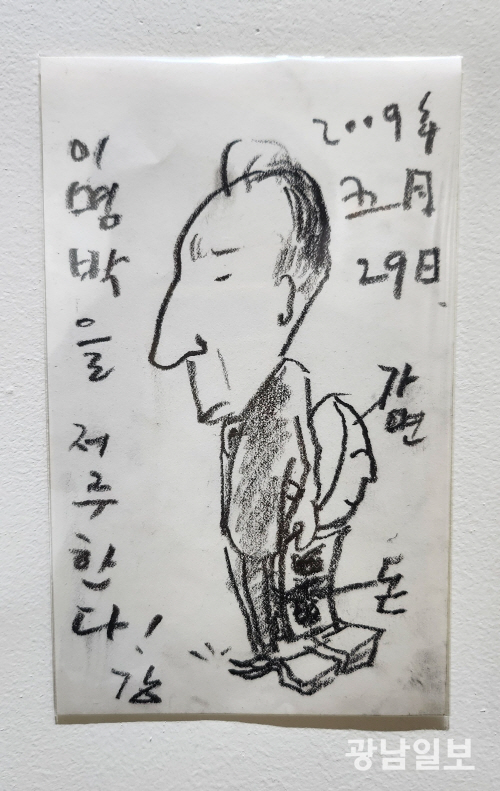 2009年
五月
29日
이명박을 저주한다!
강
가면
돈
광남일보